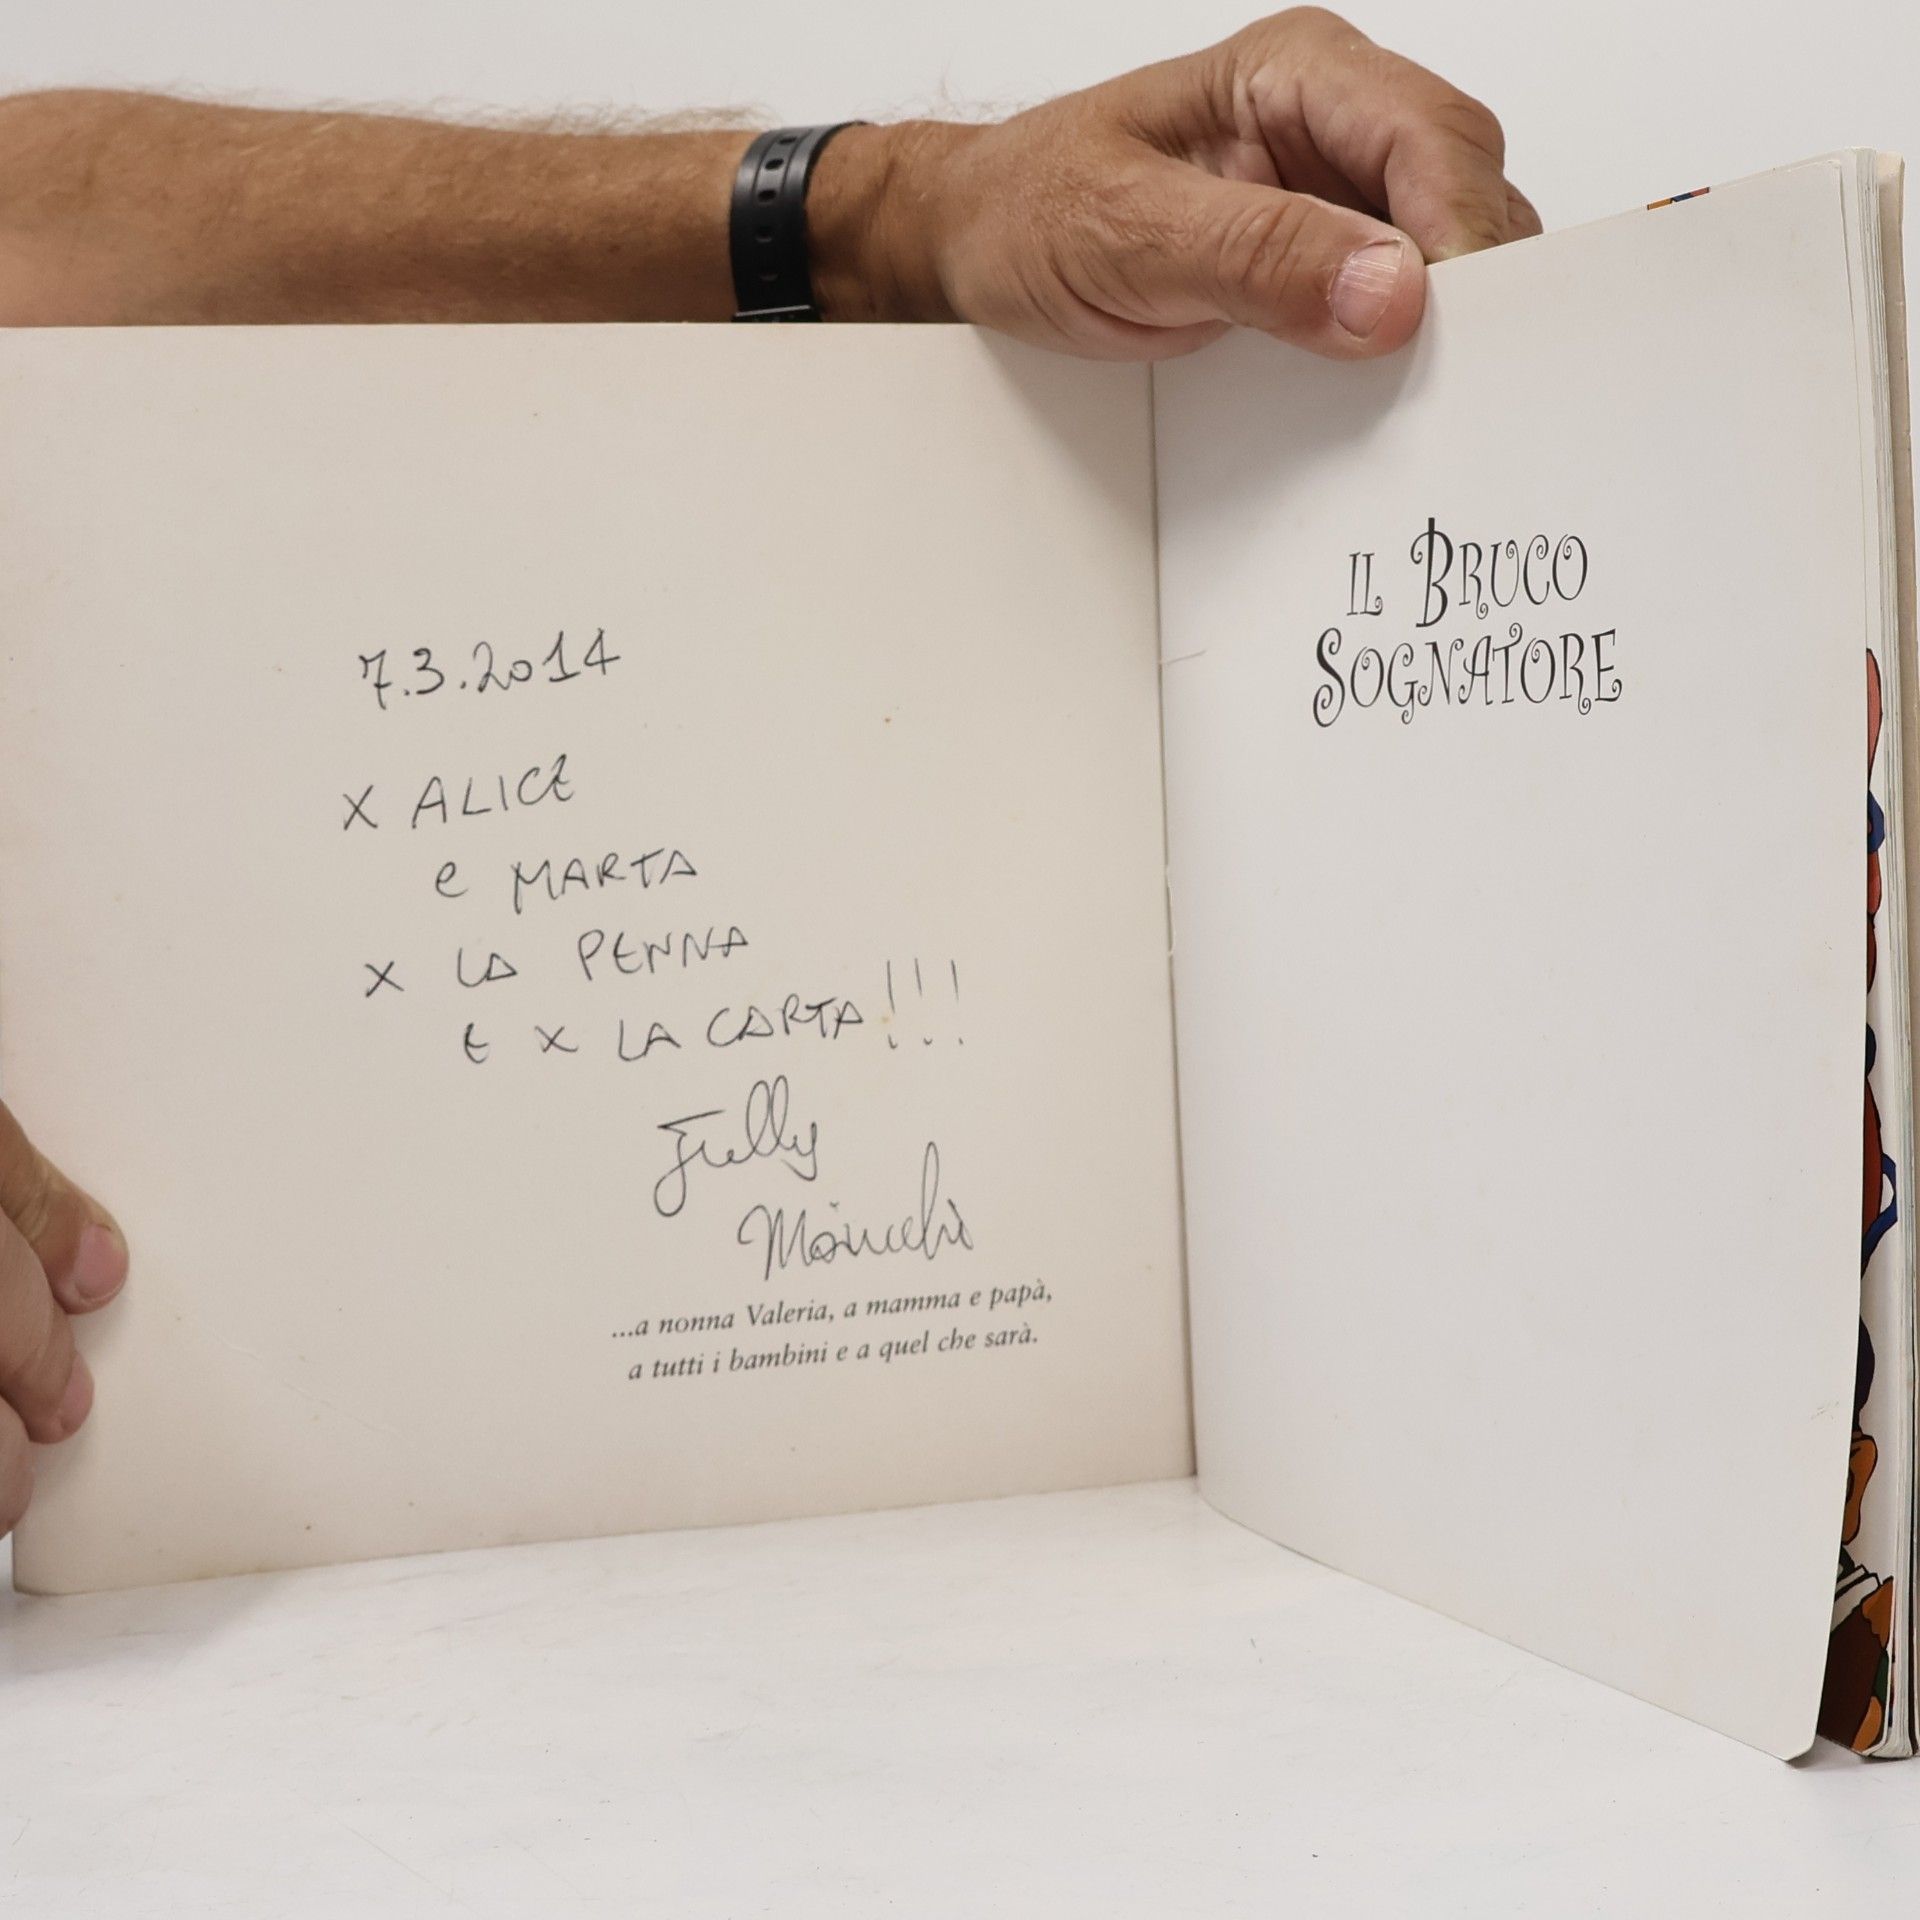 7.3.2014
X ALICE
e MARTA
X LA PENNA
E X LA CARTA!!!
...a nonna Valeria, a mamma e papà,
a tutti i bambini e a quel che sarà.
IL BRUCO
SOGNATORE